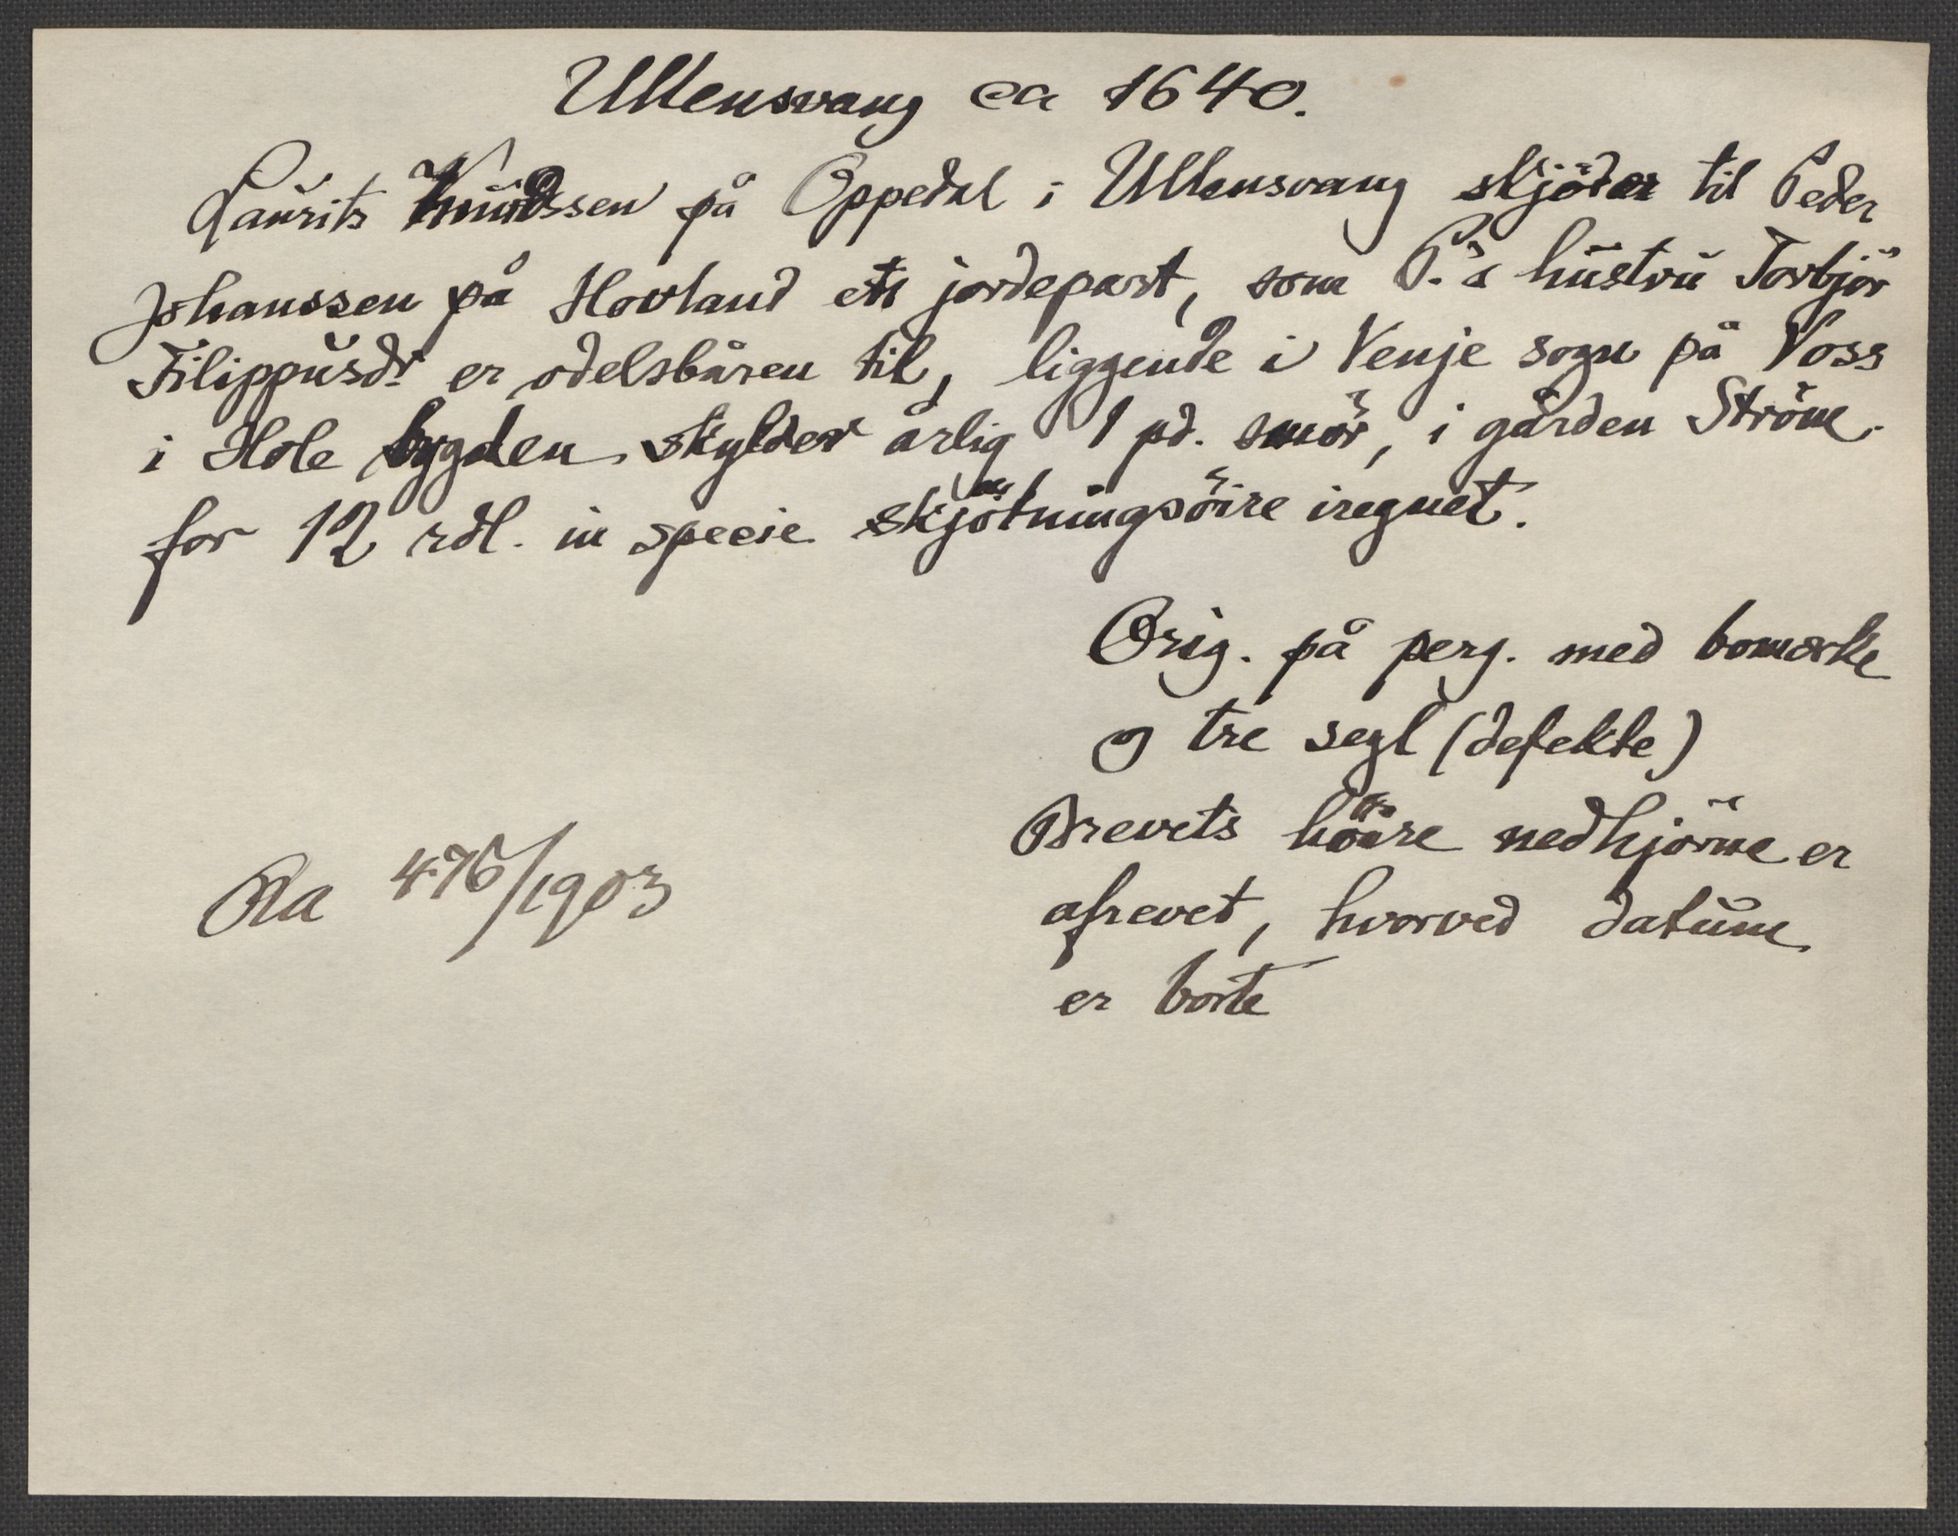 Ullensvang ca 1640.
Laurits Knudssen på Oppedal i Ullensvang skjöder til Peder
Johanssen på Hovland et jordepart, som P.s hustru Torbjör
Filippusdr er odelsbåren til, liggende i Venje sogn på Voss
i Hole bygden skylder årlig 1 pd. smör, i gården Ström.
for 12 rdl. in specie skjötningsöire iregnet.
Orig. på perg. med bomærke
og tre segl (defekte)
Brevets höire nedhjörne er
afrevet, hvorved datum
er borte
Ra 476/1903